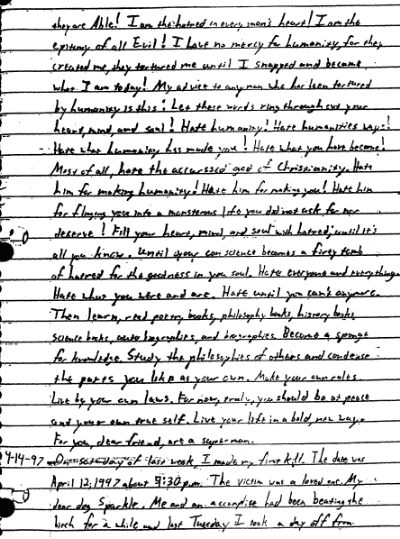 they are Able! I am the hatred in every man's heart! I am the
epitomy of all Evil! I have no mercy for humanity, for they
created me, they tortured me until I snapped and became
what I am today! My advice to any man who has been tortured
by humanity is this: Let these words ring throughout your
heart, mind, and soul! Hate humanity! Hate humanities ways!
Hate what humanity has made you! Hate what you have become!
Most of all, hate the accursed god of Christianity. Hate
him for making humanity! Hate him for making you! Hate him
for flinging you into a monsterous life you did not ask for nor
deserve! Fill your heart, mind, and soul with hatred; until it's
all you know. Until your conscience becomes a firey tomb
of hatred for the goodness in you soul. Hate everyone and everything.
Hate what you were and are. Hate until you can't anymore.
Then learn, read poetry books, philosophy books, history books,
science books, auto biographies, and biographies. Become a sponge
for knowledge. Study the philosophies of others and condense
the parts you like as your own. Make your own rules
Live by your own laws. For now, truly, you should be at peace
and your own true self. Live your life in a bold, new way.
For you, dear friend, are a superman.
4-14-97 On saterday of last week, I made my first kill. The date was
April 12, 1997 about 4:30 p.m. The victim was a loved one. My
dear dog Sparkle. Me and an accomplise had been beating the
bitch for a while and last Tuesday I took a day off from